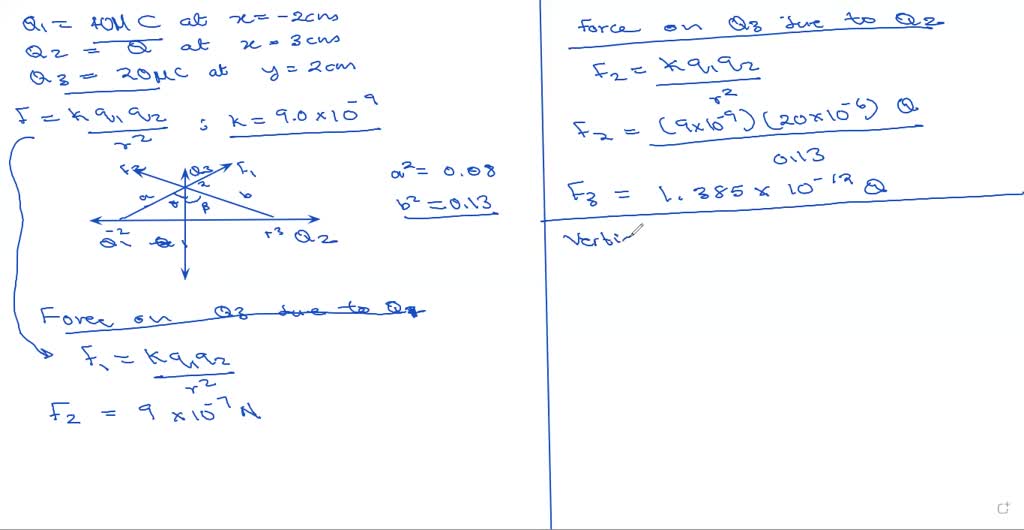 Q1 = 40μC at x = -2cms
Q2 = Q at x = 3cms
Q3 = 20μC at y = 2cm
F = k q1 q2 / r² ; k = 9.0 × 10⁻⁹
F2 Q3 F1
a 2 b
α β
-2 +3
Q1 Q2
a² = 0.08
b² = 0.13
Force on Q3 due to Q1
F1 = k q1 q2 / r²
F2 = 9 × 10⁻⁷ N
Force on Q3 due to Q2
F2 = k q1 q2 / r²
F2 = (9×10⁻⁹) (20×10⁻⁶) Q / 0.13
F3 = 1.385 × 10⁻¹² Q